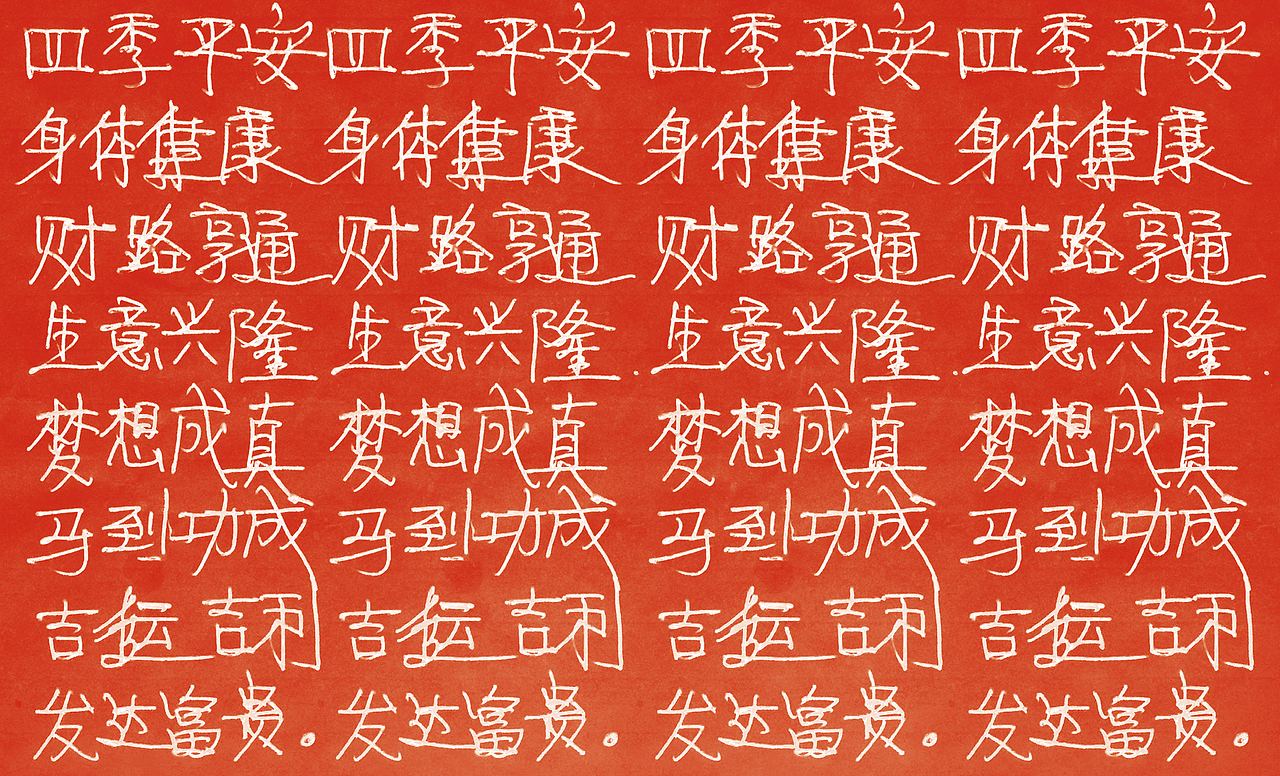 四季平安 四季平安 四季平安 四季平安
身体健康 身体健康 身体健康 身体健康
财路亨通 财路亨通 财路亨通 财路亨通
生意兴隆 生意兴隆 生意兴隆 生意兴隆
梦想成真 梦想成真 梦想成真 梦想成真
马到功成 马到功成 马到功成 马到功成
吉 吉 吉 吉 吉 吉 吉 吉
发达富贵。 发达富贵。 发达富贵。 发达富贵。